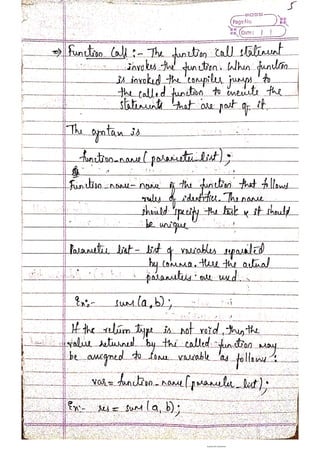 5
Page No.
Date: | |
⇒ Function Call :- The function call statement
invokes the function. When function
is invoked the compiler jumps to
the called function to execute the
statements that are part of it.
The syntax is
function_name (parameter list);
Function_name - name of the function that follows
rules of identifier. The name
should specify the task & it should
be unique
Parameter list - list of variables separated
by comma. Here the actual
parameters are used.
Ex:- sum(a,b);
If the return type is not void, then the
value returned by the called function may
be assigned to some variable as follows :
var = function_name (parameter_list);
Ex:- res = sum(a, b);